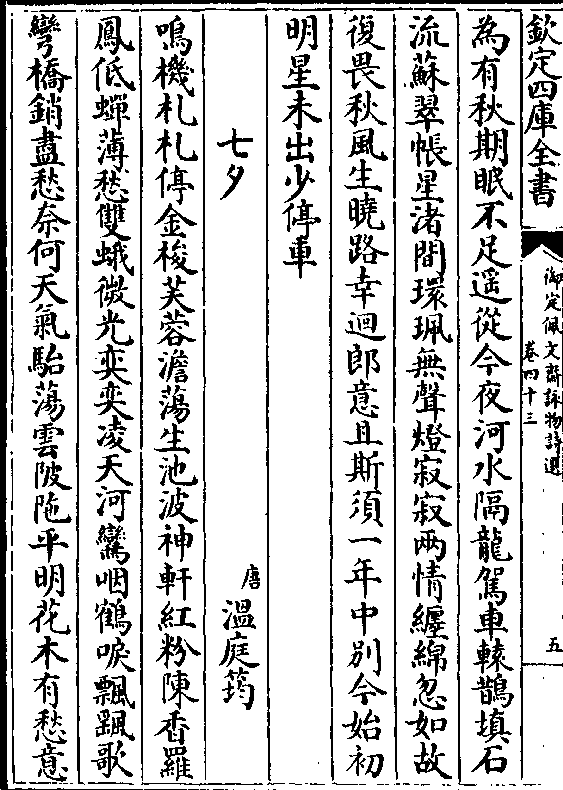 欽定四庫全書
御定佩文齋詠物詩選
卷四十三
五
為有秋期眠不足遥從今夜河水隔龍駕車轅鵲填石
流蘇翠帳星渚間環珮無聲燈寂寂兩情纏綿忽如故
復畏秋風生曉路幸迴郎意且斯須一年中别今始初
明星未出少停車
七夕
唐
溫庭筠
鳴機札札停金梭芙蓉澹蕩生池波神軒紅粉陳香羅
鳳低蟬薄愁雙蛾微光奕奕凌天河鸞咽鶴唳飄飖歌
彎橋銷盡愁奈何天氣駘蕩雲陂陁平明花木有愁意